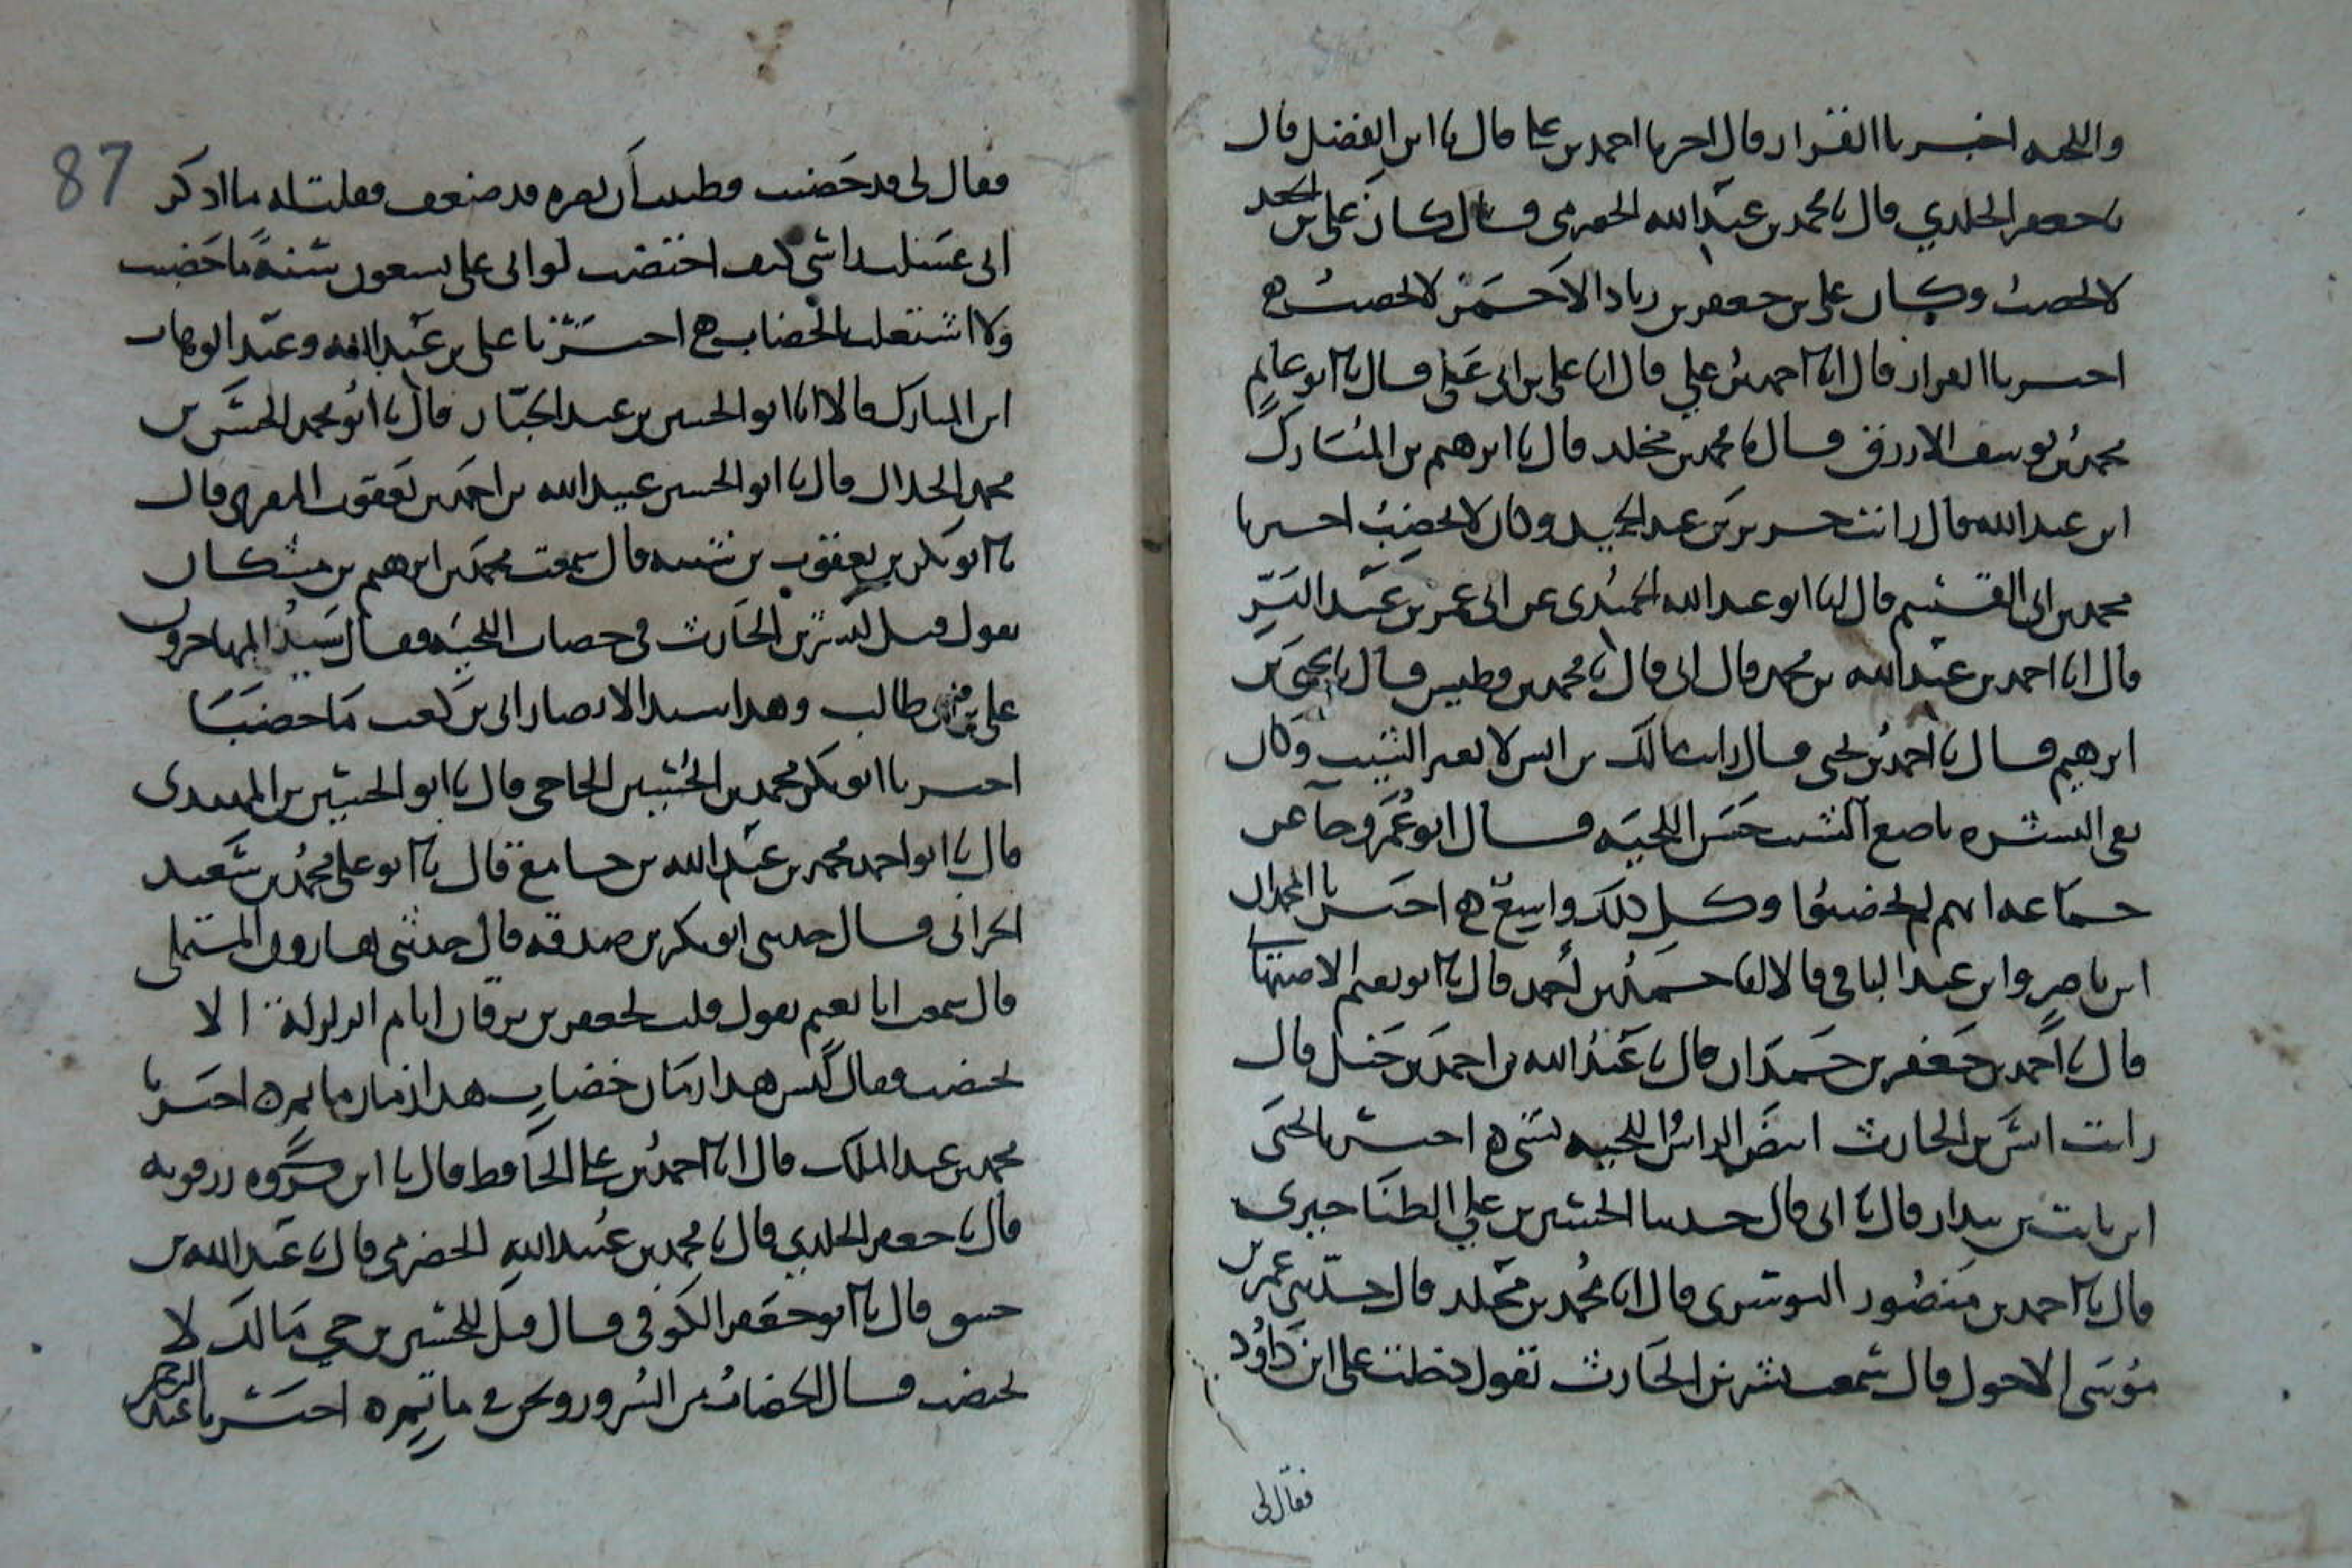 واللحيه اخبرنا القزاز قال اخبرنا احمد بن علي قال نا ابن الفضل قال
نا جعفر الخلدي قال نا محمد بن عبد الله الحضرمي قال كان علي بن الجعد
لا يخضب وكان علي بن جعفر بن زياد الاحمر لا يخضب ه
اخبرنا القزاز قال انا احمد بن علي قال انا علي بن ابي علي قال نا ابو غانم
محمد بن يوسف الازرق قال نا محمد بن مخلد قال نا ابرهيم بن المبارك
ابن عبد الله قال رايت جرير بن عبد الحميد وكان لا يخضب اخبرنا
محمد بن ابي القسم قال انا ابو عبد الله الحميدي عن ابي عمر بن عبد البر
قال انا احمد بن عبد الله بن محمد قال ابي قال نا محمد بن فطيس قال نا يحيى بن
ابرهيم قال نا احمد بن يحيى قال رايت مالك بن انس لا يغير الشيب وكان
نقي البشره ناصع الشيب حسن اللحيه قال ابو عمر وجا عن
جماعه انهم لم يخضبوا وكل ذلك واسع ه اخبرنا المحمدان
ابن ناصر وابن عبد الباقي قالا انا حمد بن احمد قال نا ابو نعيم الاصبهاني
قال نا احمد بن جعفر بن حمدان قال نا عبد الله بن احمد بن حنبل قال
رايت بشر بن الحارث ابيض الراس واللحيه ه اخبرنا يحيى
ابن ثابت بن بندار قال نا ابي قال حدثنا الحسين بن علي الطناجيري
قال نا احمد بن منصور النوشري قال انا محمد بن مخلد قال حدثني عمر بن
موسى الاحول قال سمعت بشر بن الحارث يقول دخلت على ابن داود
فقال لي
87
فقال لي قد خضبت فطلبت بصره قد ضعف فقلت له ما اذكر
اني غسلت راسي كيف اختضب لو اتى علي تسعون سنة ما خضبت
ولا اشتغلت بالخضاب ه اخبرنا علي بن عبيد الله وعبد الوهاب
ابن المبارك قالا انا ابو الحسين بن عبد الجبار قال نا ابو محمد الحسن بن
محمد الخلال قال نا ابو الحسين عبيد الله بن احمد بن يعقوب المقري قال
نا ابو بكر بن يعقوب بن شيبه قال سمعت محمد بن ابرهيم بن مشكان
يقول قيل لبشر بن الحارث في خضاب اللحيه فقال سيد المهاجرين
علي بن ابي طالب وهذا سيد الانصار ابي بن كعب ما خضبا
اخبرنا ابو بكر محمد بن الحسين الحاجي قال نا ابو الحسين بن المهتدي
قال نا ابو احمد محمد بن عبد الله بن جامع قال نا ابو علي محمد بن سعيد
الحراني قال حدثني ابو بكر بن صدقه قال حدثني هارون المستملي
قال سمعت ابا نعيم يقول قلت لجعفر بن برقان ايام الزلزلة الا
تخضب فقال ليس هذا زمان خضاب هذا زمان ما تمره اخبرنا
محمد بن عبد الملك قال انا احمد بن علي الحافظ قال نا ابن رزقويه
قال نا جعفر الخلدي قال نا محمد بن عبد الله الحضرمي قال نا عبد الله بن
قال نا ابو جعفر الكوفي قال قيل للحسن بن حي مالك لا
تخضب قال الخضاب من السرور ونحن في ماتمره اخبرنا عبد الرحمن